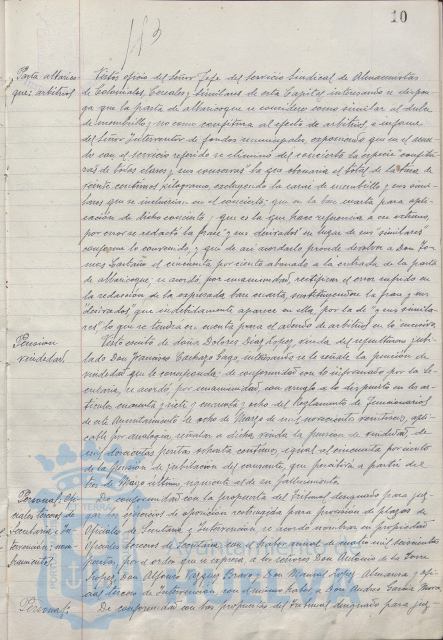 10
183
Pasta albarico
que: arbitrios
Visto oficio del Señor Jefe del Servicio Sindical de Almacenistas
de Coloniales, Cereales y similares de esta Capital interesando se dispon
ga que la pasta de albaricoque se considere como similar al dulce
de membrillo y no como confitura al efecto de arbitrios, e informe
del Señor Interventor de fondos municipales, exponiendo que en el acuer
do con el servicio referido se eliminó del concierto la especie "confitu
ras de todas clases y sus conservas" la que abonaría el total de la tasa de
veinte céntimos kilogramo, excluyendo la carne de membrillo y sus simi
lares que se incluirían en el concierto; que en la base cuarta para apli
cación de dicho concierto, y que es la que hace referencia a
por error se redactó la frase "y sus derivados" en lugar de sus "similares"
conforme lo convenido, y que de así acordarlo procede devolver a Don To
más el cincuenta por ciento abonado a la entrada de la pasta
de albaricoque; se acordó, por unanimidad, rectificar el error sufrido en
la redacción de la expresada base cuarta, sustituyendo la frase "y sus
derivados" que indebidamente aparece en ella, por la de "y sus simila
res" lo que se tendrá en cuenta para el adeudo de arbitrios en lo sucesivo.
Pensión
viudedad
Visto escrito de doña Dolores Díaz López, viuda del jubi
lado Don Francisco Sago, interesando se le señale la pensión de
viudedad que le corresponda; de conformidad con lo informado por la Se
cretaría, se acordó, por unanimidad, con arreglo a lo dispuesto en los ar
tículos cincuenta y siete y cincuenta y ocho del Reglamento de Funcionarios
de este Ayuntamiento de ocho de Marzo de mil novecientos veintiuno, apli
cable por analogía, señalar a dicha viuda la pensión de viudedad de
mil doscientas pesetas ochenta céntimos, igual al cincuenta por ciento
de la pensión de jubilación del causante, que percibirá a partir del
tres de Mayo último, siguiente al de su fallecimiento.
Personal: Ofi
ciales terceros de
Secretaría e In
tervención; nom
bramientos
De conformidad con la propuesta del Tribunal designado para juz
gar los ejercicios de oposición restringida para provisión de plazas de
Oficiales de Secretaría y Intervención, se acordó nombrar en propiedad
Oficiales terceros de Secretaría, con el haber anual de
pesetas, por el orden que se expresa, a los señores Don Antonio de la Torre
López, Don Alfonso Vázquez Bravo y Don Manuel López Almansa y ofi
cial tercero de Intervención, con el mismo haber, a Don Andrés García Mora.
Personal:
De conformidad con las propuestas del Tribunal designado para juz
Ayuntamiento